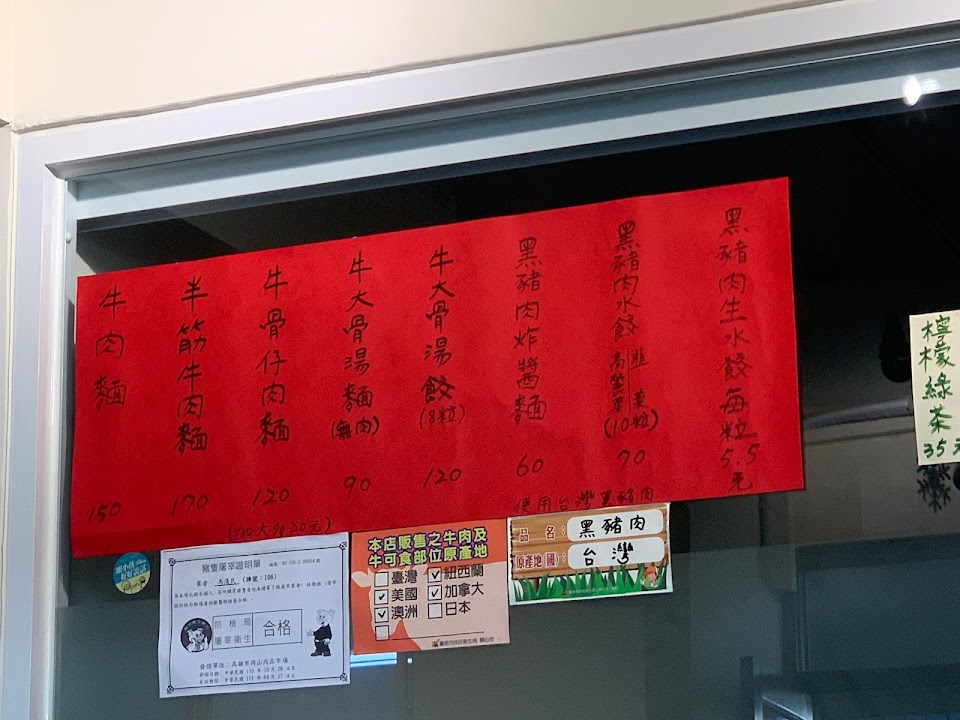 黑豬肉生水餃每粒5.5元
黑豬肉水餃 韭菜 高麗菜 (10粒) 70
黑豬肉炸醬麵 60
牛大骨湯餃 (8粒) 120
牛大骨湯麵 (無肉) 90
牛骨仔肉麵 120
半筋牛肉麵 170
牛肉麵 150
使用台灣黑豬肉
檸檬綠茶
35元
豬隻屠宰證明單
防檢局
屠宰衛生
合格
發證單位：高雄市岡山肉品市場
本店販售之牛肉及
牛可食部位原產地
臺灣 ✓紐西蘭
✓美國 ✓加拿大
✓澳洲 日本
品名：黑豬肉
原產地(國)：台灣